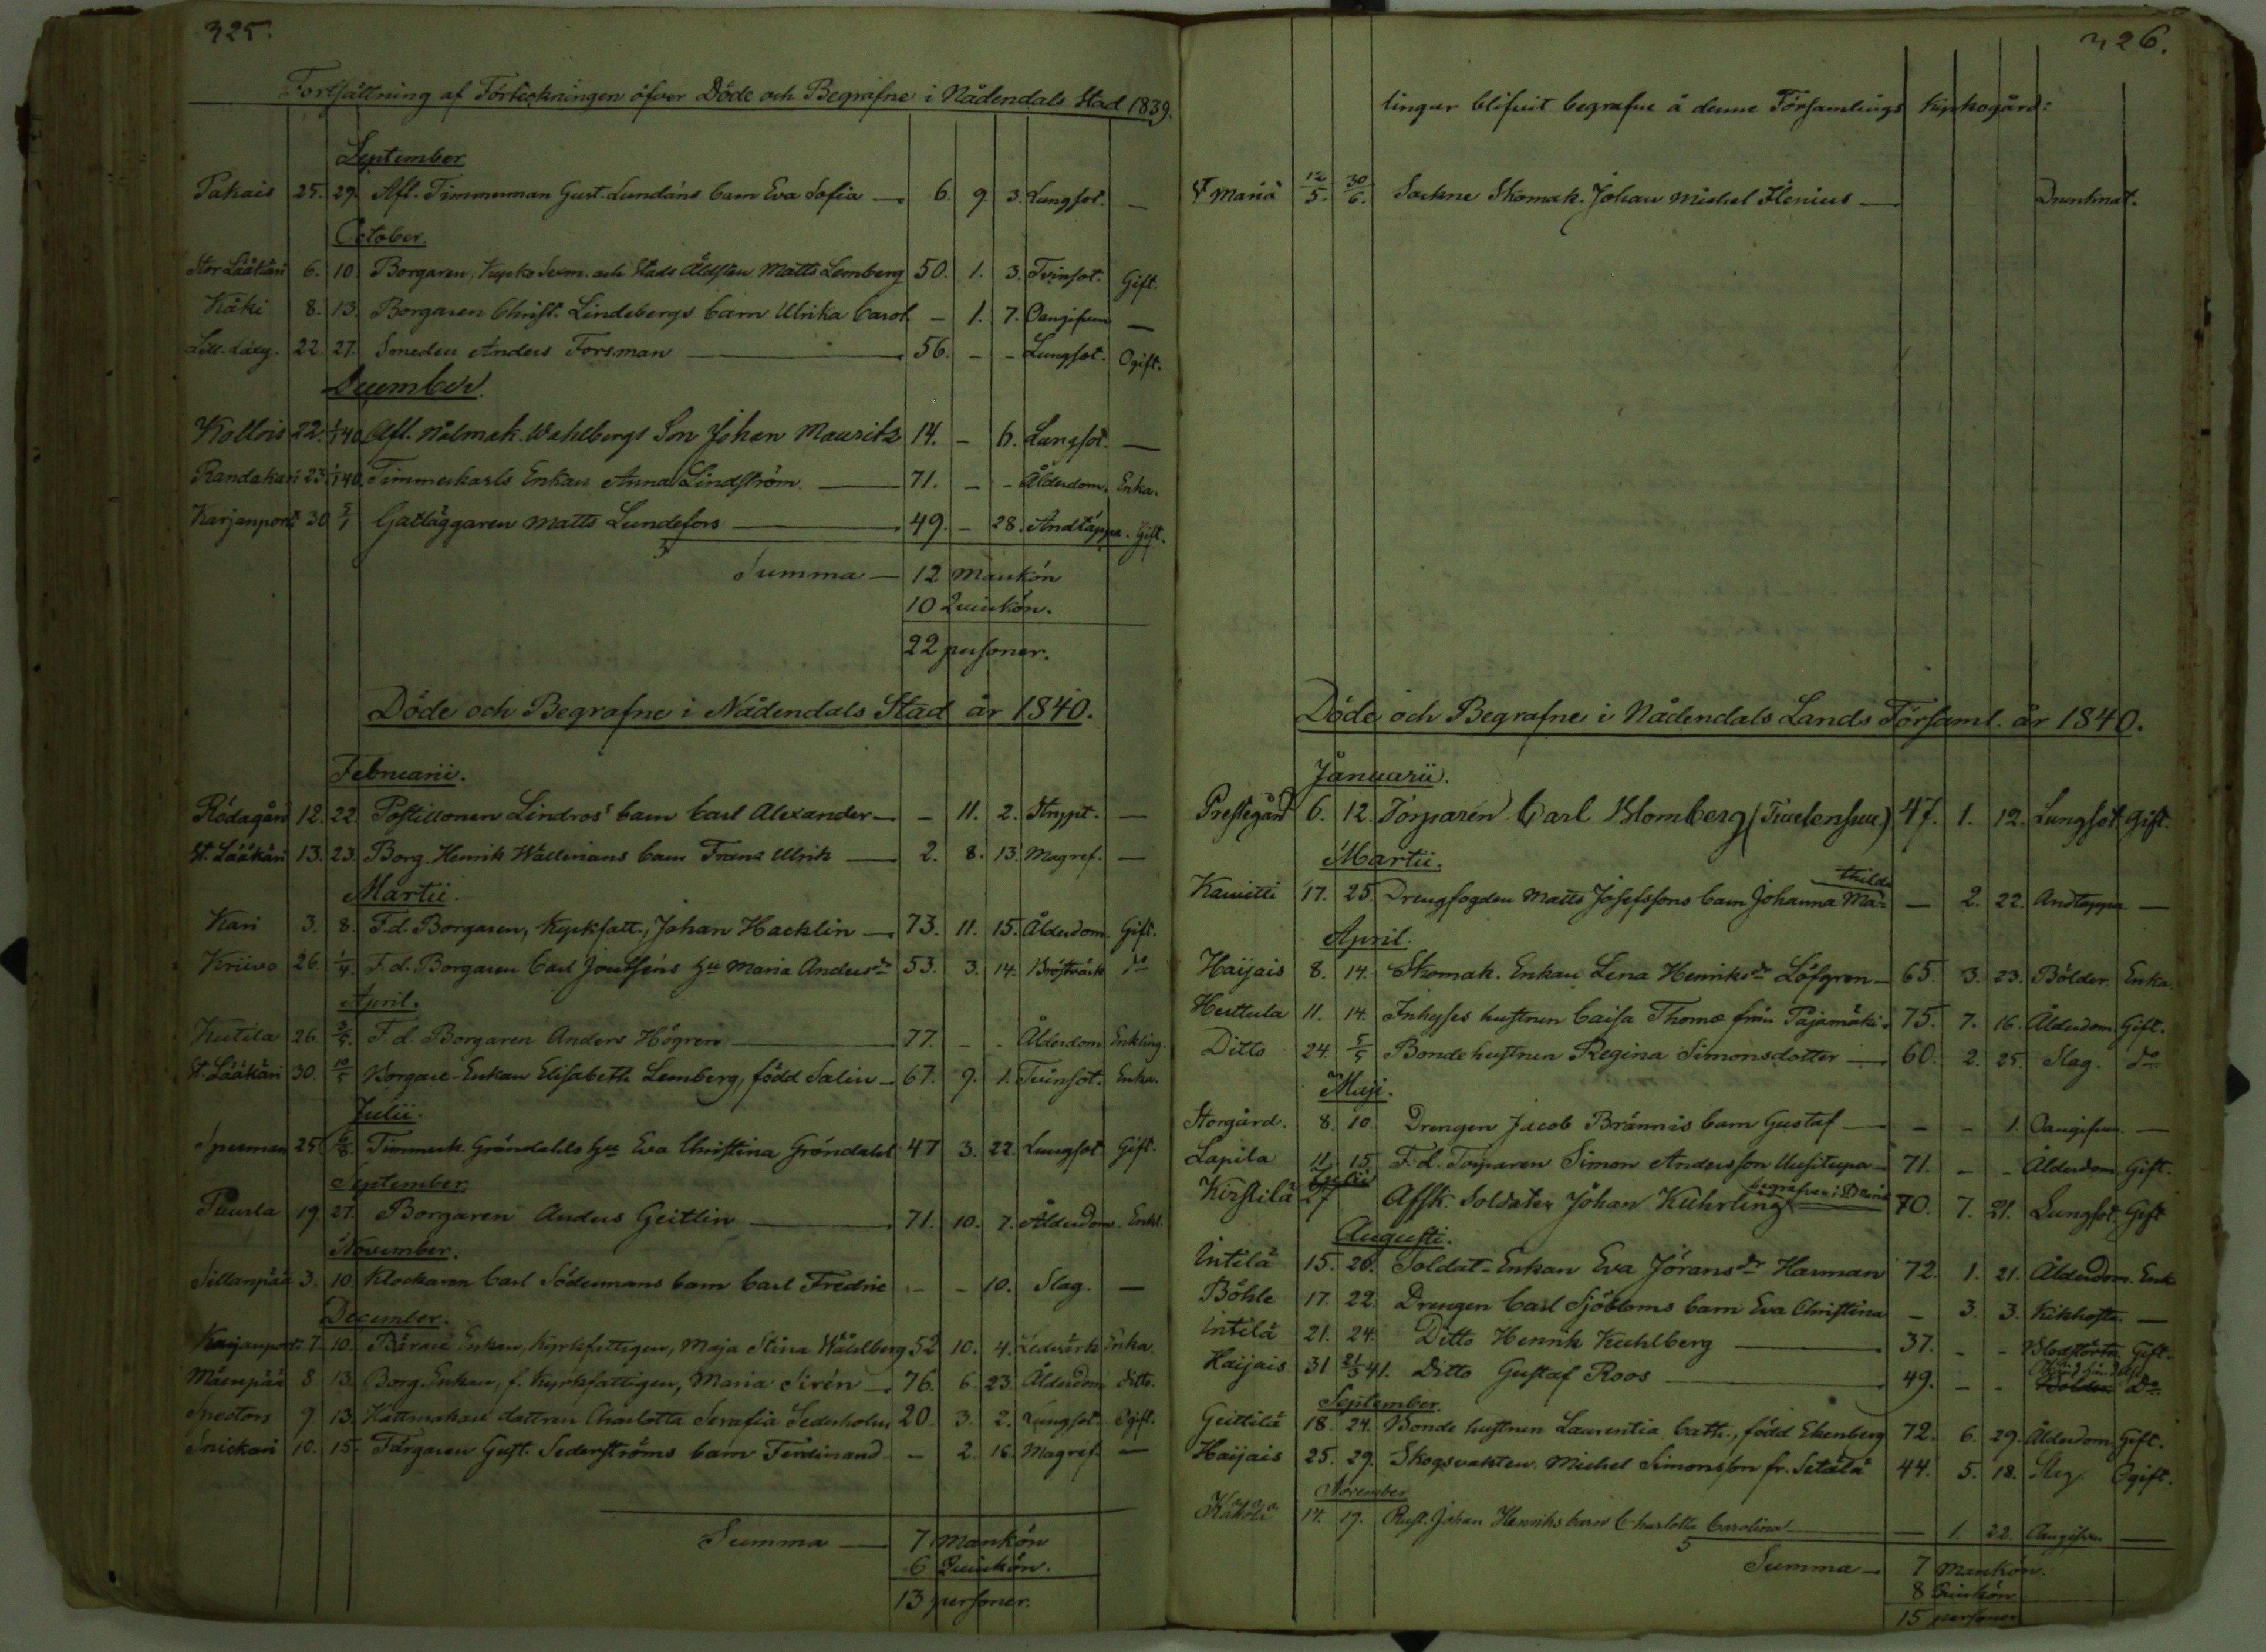 325.
Fortsättning af Förteckningen öfver Döde och Begrafne i Nådendals Stad 1839.
September
Pakais 25. 29. Afl. Timmerman Gust. Lundáns barn Eva Sofia — 6. 9. 3. Lungsot. —
October.
Stor Lääkäri 6. 10. Borgaren, Kyrko Sexm. och Stads Äldsten Matts Lemberg 50. 1. 3. Tvinsot. Gift.
Käki 8. 13. Borgaren Christ. Lindebergs barn Ulrika Carol. — 1. 7. Oangifven —
22. 27. Smeden Anders Forsman — 56. — — Lungsot. Ogift.
December.
Kollois 22. 1/1 40 Afl. Nålmak. Wahlbergs Son Johan Mauritz 14. — 6. Lungsot. —
Randakari 23. 1/1 40. Timmerkarls Enkan Anna Lindström — 71. — — Ålderdom. Enka.
Karjanport 30 5/1 Gatläggaren Matts Lundefors — 49. — 28. Andtäppa. Gift.
Summa — 12 Mankön
10 Quinkön.
22 personer.
Döde och Begrafne i Nådendals Stad år 1840.
Februarii.
Rödagård 12. 22. Postillonen Lindros' barn Carl Alexander — — 11. 2. Strypt. —
St. Lääkäri 13. 23. Borg. Henrik Wallenians barn Frans Ulrik — 2. 8. 13. Magref. —
Martii.
Kari 3. 8. F.d. Borgaren, Kyrkfatt., Johan Hacklin — 73. 11. 15. Ålderdom. Gift.
Kriivo 26. 1/4. F.d. Borgaren Carl hu Maria Andersdr 53. 3. 14. Bröstvärk do
April.
Kutila 26. 3/5. F.d. Borgaren Anders Högren — 77. — — Ålderdom Enkling.
St. Lääkäri 30. 10/5 Borgare-Enkan Elisabeth Lemberg, född Salin — 67. 9. 1. Tvinsot. Enka.
Julii.
Spelman 25. 6/8. Timmerk. Gröndahls hu Eva Christina Gröndahl 47 3. 22. Lungsot Gift.
September
Paurla 19. 27. Borgaren Anders Geitlin — 71. 10. 7. Ålderdom. Enkl.
November.
Sillanpää 3. 10. Klockaren Carl Södermans barn Carl Fredric — — 10. Slag. —
December.
Karjanport 7. 10. Enkan, Kyrkfattigen, Maja Stina Wahlberg 52 10. 4. Ledvärk Enka.
Mäenpää 8 13. Borg. Enkan, f. Kyrkfattigen, Maria Sirén — 76. 6. 23. Ålderdom ditto.
Spectors 9. 13. Hattmakare dottren Charlotta Serafia Sederholm 20. 3. 2. Lungsot. Ogift.
Snickari 10. 15. Färgaren Gust. Sederströms barn Ferdinand. — 2. 16. Magref. —
Summa — 7 Mankön
6 Quinkön.
13 personer.
326.
lingar blifvit begrafne å denne Församlings Kyrkogård:
St Mariä 12/5. 30/6. Sockne Skomak. Johan Michel Flenius — Drunknat.
Döde och Begrafne i Nådendals Lands Församl. år 1840.
Januarii.
Prestegård 6. 12. Torparen Carl Blomberg 47. 1. 12. Lungsot. Gift.
Martii.
Kawitti 17. 25. Drengfogden Matts Josefssons barn Johanna Mathilda — 2. 22. Andtäppa —
April.
Haijais 8. 14. Skomak. Enkan Lena Henriksdr Löfgren — 65. 3. 23. Bölder. Enka.
Herttula 11. 14. Inhyses hustrun Caisa Thomæ från Pajamäki. 75. 7. 16. Ålderdom. Gift.
Ditto 24. 5/5 Bondehustrun Regina Simonsdotter — 60. 2. 25. Slag. do
Maji.
Storgård. 8. 10. Drengen Jacob Brännis barn Gustaf — — — 1. Oangifven. —
Lapila 11. 15. F.d. Torparen Simon Andersson Uusitupa — 71. — — Ålderdom Gift.
Julii
Kirstilä 27 Affsk. Soldaten Johan Kührling begrafven i 70. 7. 21. Lungsot. Gift
Augusti.
Intilä 15. 20. Soldat-Enkan Eva Jöransdr Harman 72. 1. 21. Ålderdom. Enk
Böhle 17. 22. Drengen Carl Sjöbloms barn Eva Christina — 3. 3. Kikhosta. —
Intilä 21. 24. Ditto Henrik Kuhlberg — 37. — — Blodstörtn. Gift.
Haijais 31 21/3 41. Ditto Gustaf Roos — 49. — — händelse do
September.
Geittilä 18. 24. Bonde hustrun Laurentia Cath., född Ekenberg 72. 6. 29. Ålderdom Gift.
Haijais 25. 29. Skogsvakten Michel Simonsson fr. Setälä 44. 5. 18. Slag. Ogift.
November
Käkölä 14. 19. Rust. Johan Henriks barn Charlotta Carolina — — 1. 22. Oangifven —
Summa — 7 Mankön.
8 Quinkön
15 personer